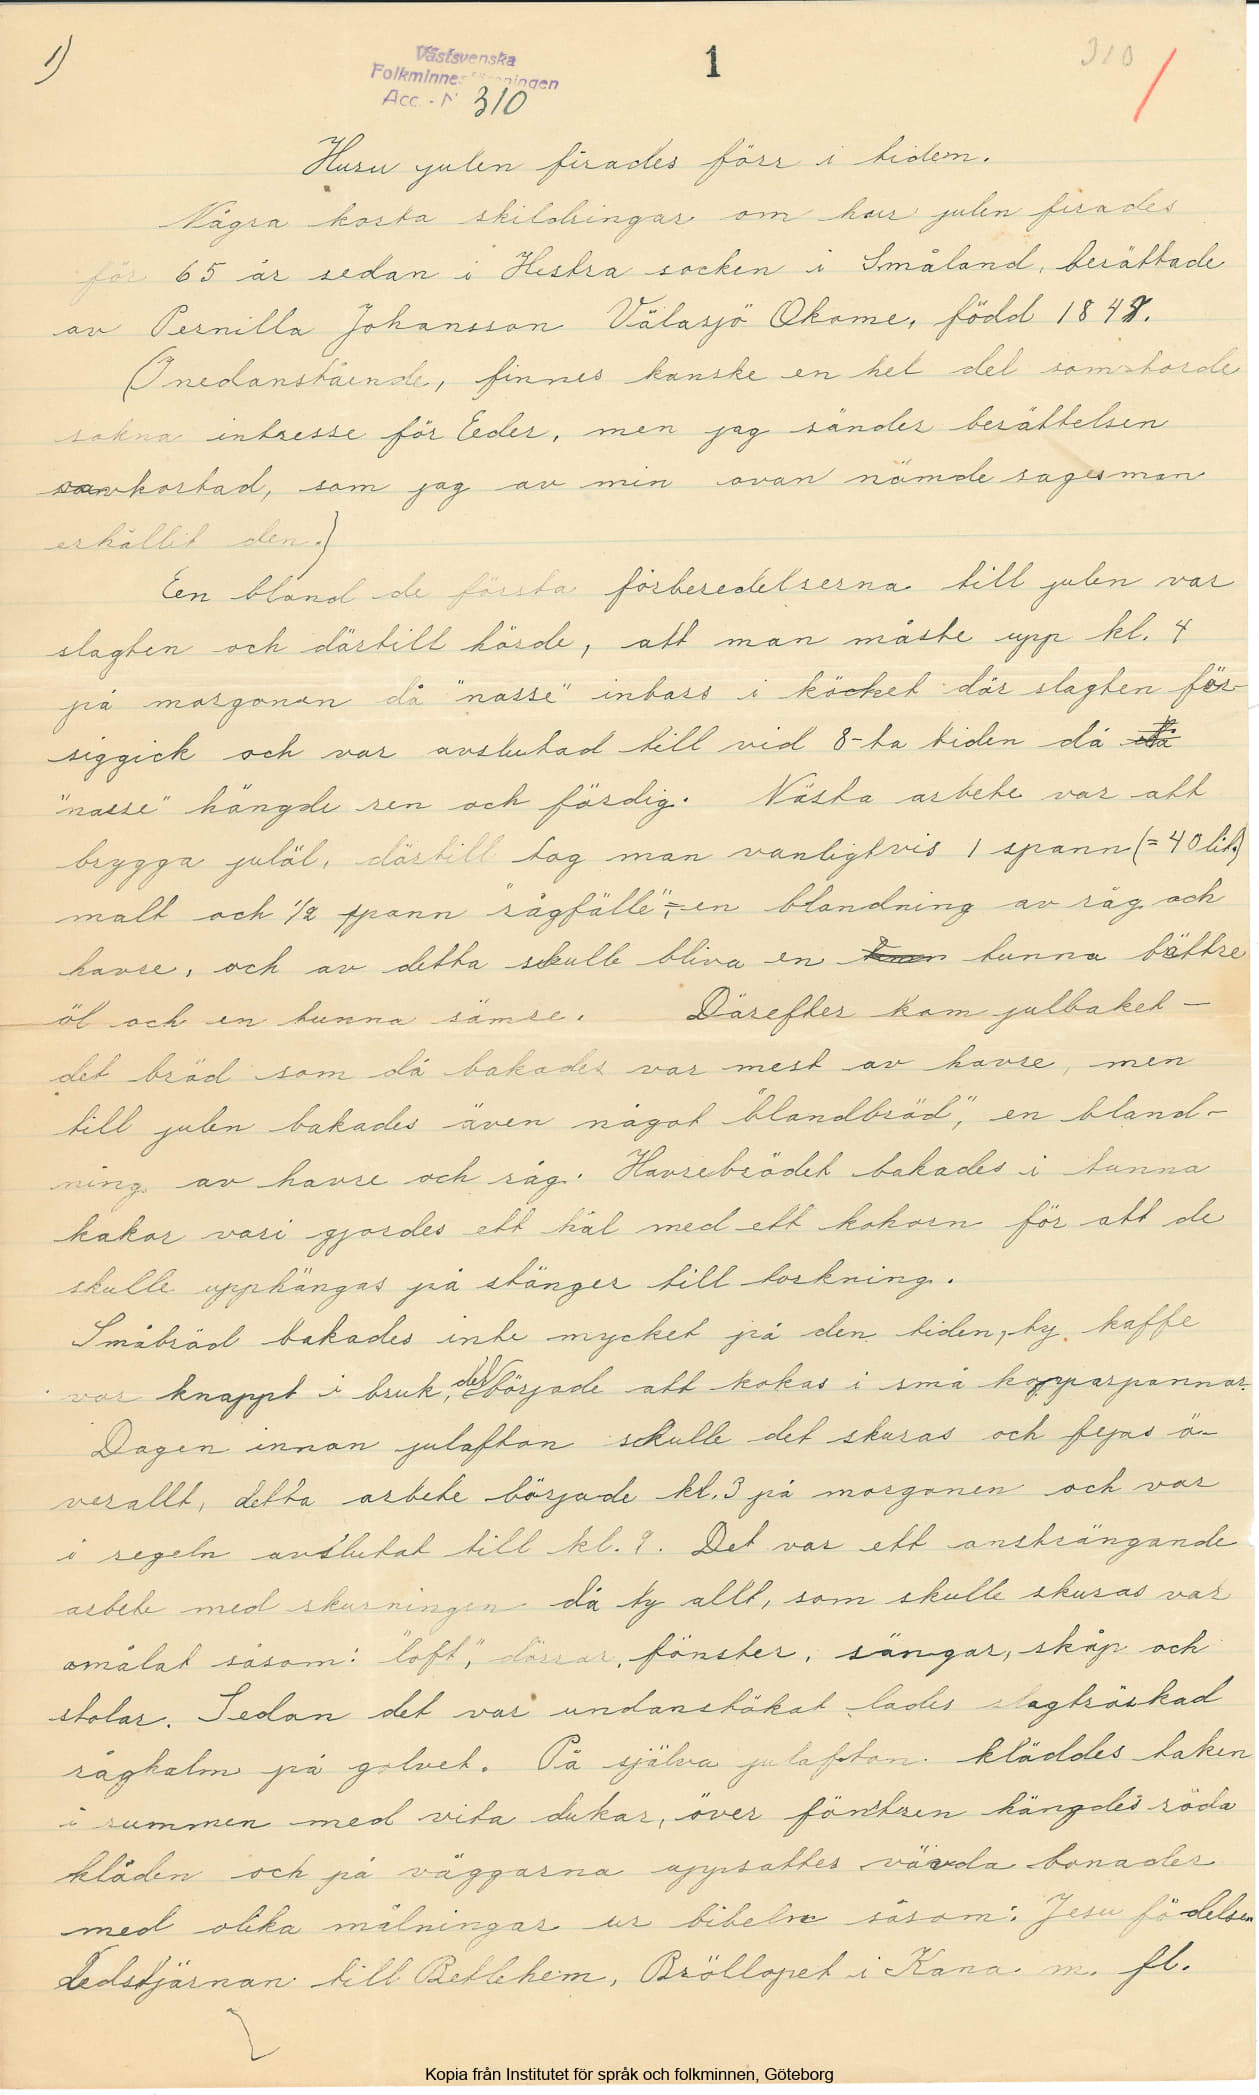 1)
Västsvenska
Folkminnesföreningen
Acc. - N 310
1
310
Huru julen firades förr i tiden.
Några korta skildringar om hur julen firades
för 65 år sedan i Hestra socken i Småland, berättade
av Pernilla Johansson Välasjö Okome, född 1848.
(I nedanstående, finnes kanske en hel del som torde
sakna intresse för Eeder, men jag sänder berättelsen
oavkortad, som jag av min ovan nämde sagesman
erhållit den.)
Een bland de första förberedelserna till julen var
slagten och därtill hörde, att man måste upp kl. 4
på morgonen då "nasse" intars i köcket där slagten för
siggick och var avslutad till vid 8-ta tiden då
"nasse" hängde ren och färdig. Nästa arbete var att
brygga julöl, därtill tog man vanligtvis 1 spann (= 40 lit.)
malt och 1/2 spann "rågfälle", = en blandning av råg och
havre, och av detta skulle bliva en tunna bättre
öl och en tunna sämre. Därefter kom julbaket –
det bröd som då bakades var mest av havre, men
till julen bakades även något "blandbröd", en bland-
ning av havre och råg. Havrebrödet bakades i tunna
kakor vari gjordes ett hål med ett kohorn för att de
skulle upphängas på stänger till torkning.
Småbröd bakades inte mycket på den tiden, ty kaffe
var knappt i bruk, det började att kokas i små kopparpannor.
Dagen innan julafton skulle det skuras och fejas ö-
verallt, detta arbete började kl. 3 på morgonen och var
i regeln avslutat till kl. 9. Det var ett ansträngande
arbete med skurningen då ty allt, som skulle skuras var
omålat såsom: "loft", dörrar, fönster, sängar, skåp och
stolar. Sedan det var undanstökat lades slagtröskad
råghalm på golvet. På själva julafton kläddes taken
i rummen med vita dukar, över fönstren hängdes röda
kläden och på väggarna uppsattes vävda bonader
med olika målningar ur bibeln såsom: Jesu födelsen
Ledstjärnan till Betlehem, Bröllopet i Kana m. fl.
Kopia från Institutet för språk och folkminnen, Göteborg